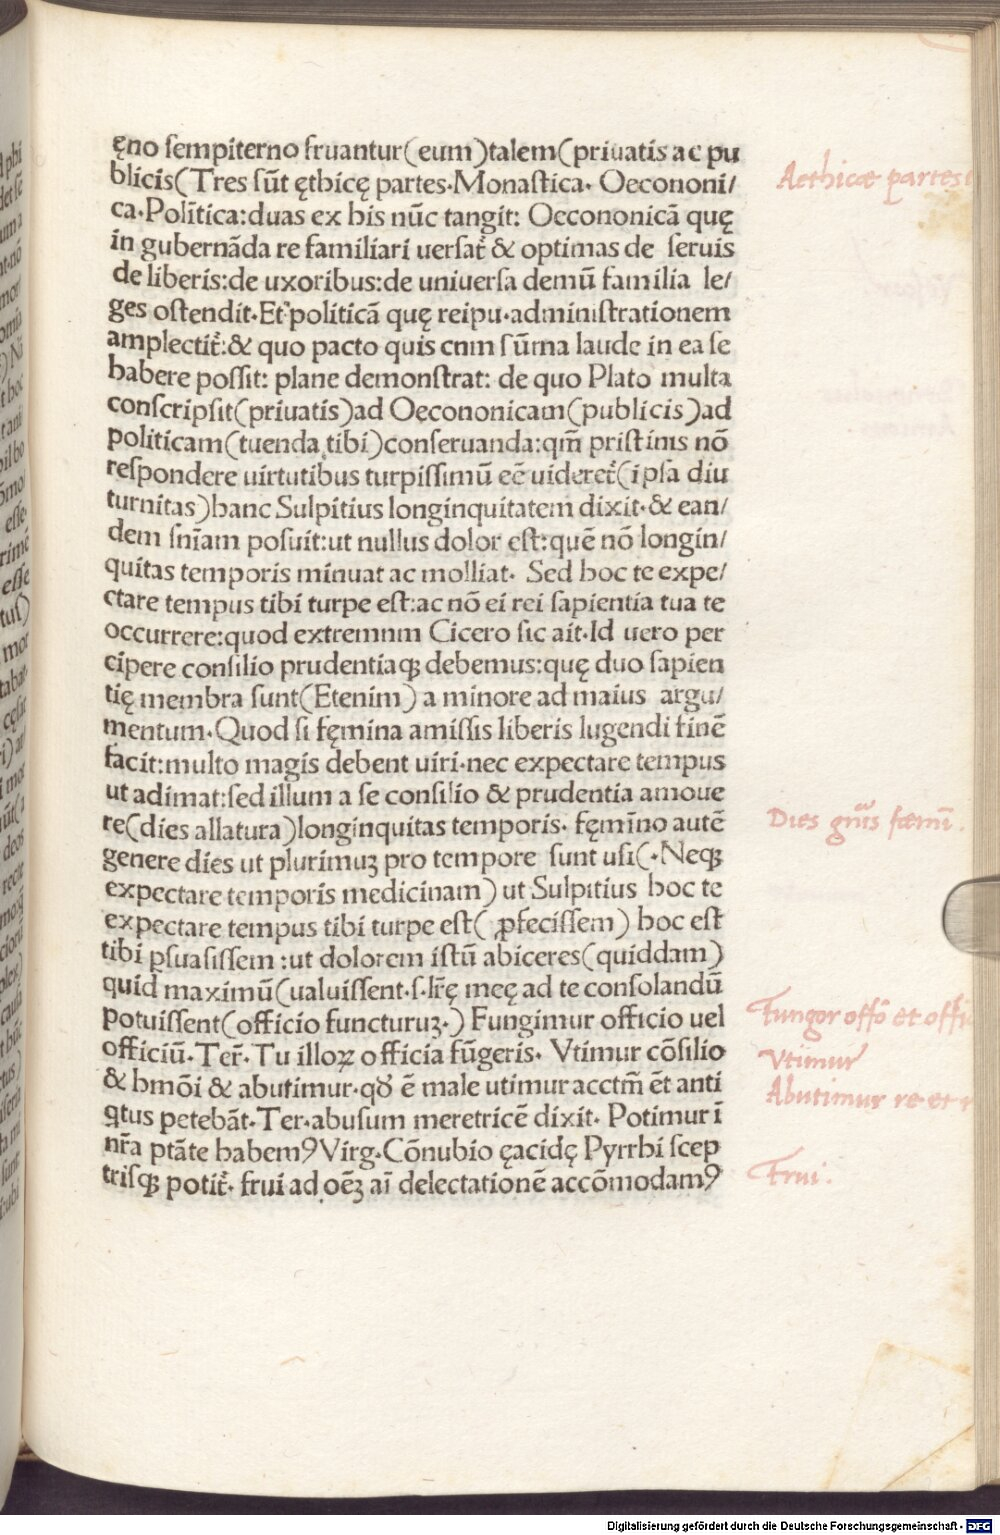 ęno ſempiterno fruantur(eum)talem(priuatis ac pu
blicis(Tres ſũt ęthicę partes·Monaſtica· Oecononi/
ca·Politica:duas ex his nũc tangit: Oecononicã quę
in gubernãda re familiari uerſat̃ & optimas de ſeruis
de liberis:de uxoribus:de uniuerſa demũ familia le/
ges oſtendit·Et politicã quę reipu·adminiſtrationem
amplectit̃:& quo pacto quis cnm ſũma laude in ea ſe
habere poſſit: plane demonſtrat: de quo Plato multa
conſcripſit(priuatis)ad Oecononicam(publicis)ad
politicam(tuenda tibi)conſeruanda:qm̃ priſtinis nõ
reſpondere uirtutibus turpiſſimũ eẽ uideret̃(ipſa diu
turnitas)hanc Sulpitius longinquitatem dixit·& ean/
dem ſnĩam poſuit:ut nullus dolor eſt:quẽ nõ longin/
quitas temporis minuat ac molliat· Sed hoc te expe/
ctare tempus tibi turpe eſt:ac nõ ei rei ſapientia tua te
occurrere:quod extremnm Cicero ſic ait·Id uero per
cipere conſilio prudentiaqꝫ debemus:quę duo ſapien
tię membra ſunt(Etenim) a minore ad maius argu/
mentum·Quod ſi fęmina amiſſis liberis lugendi finẽ
facit:multo magis debent uiri·nec expectare tempus
ut adimat:ſed illum a ſe conſilio & prudentia amoue
re(dies allatura)longinquitas temporis· fęmino autẽ
genere dies ut plurimuꝫ pro tempore ſunt uſi(·Neqꝫ
expectare temporis medicinam) ut Sulpitius hoc te
expectare tempus tibi turpe eſt( ꝓfeciſſem) hoc eſt
tibi ꝑſuaſiſſem :ut dolorem iſtũ abiceres(quiddam)
quid maximũ(ualuiſſent·ſ·lr̃ę meę ad te conſolandũ
potuiſſent(officio functuruꝫ·) Fungimur officio uel
officiũ·Ter̃·Tu illoꝝ officia fũgeris· Vtimur cõſilio
& hmõi & abutimur·qđ ẽ male utimur acctm̃ ẽt anti
qtus petebãt·Ter·abuſum meretricẽ dixit· Potimur ĩ
nr̃a ptãte habemꝰ Virg·Cõnubio ęacidę Pyrrhi ſcep
triſqꝫ potit̃· frui ad oẽꝫ aĩ delectationẽ accõmodamꝰ
Aethicæ partes
Dies gñis fæmi.
Fungor offõ et offi
Vtimur
Abutimur re et r
Frui.
Digitalisierung gefördert durch die Deutsche Forschungsgemeinschaft - DFG